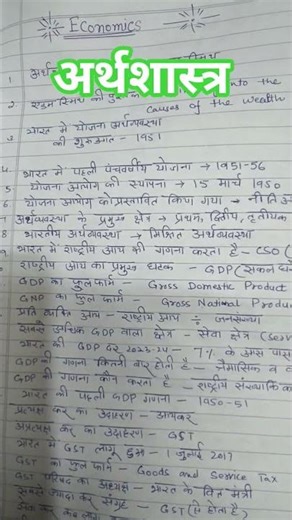 Economics
अर्थशास्त्र
1 अर्थ
2 एडम स्मिथ की पुस्तक into the
Causes of the Wealth
3 भारत में योजना अर्थव्यवस्था
की शुरुआत - 1951
4. भारत में पहली पंचवर्षीय योजना → 1951-56
5 योजना आयोग की स्थापना → 15 मार्च 1950
6 योजना आयोग को प्रस्तावित किया गया → नीति आ
7 अर्थव्यवस्था के प्रमुख क्षेत्र → प्रथम, द्वितीय, तृतीयक
8 भारतीय अर्थव्यवस्था → मिश्रित अर्थव्यवस्था
9 भारत में राष्ट्रीय आय की गणना करता है - CSO (
राष्ट्रीय आय का प्रमुख घटक - GDP (सकल घ
GDP का फुल फॉर्म - Gross Domestic Product
GNP का फुल फॉर्म - Gross National Produc
प्रति व्यक्ति आय - राष्ट्रीय आय ÷ जनसंख्या
सबसे अधिक GDP वाला क्षेत्र - सेवा क्षेत्र (Serv
भारत की GDP दर 2023-24 - 7% के आस पास
GDP की गणना कितनी बार होती है - त्रैमासिक व व
GDP की गणना कौन करता है - राष्ट्रीय सांख्यिकी का
भारत की पहली GDP गणना - 1950-51
प्रत्यक्ष कर का उदाहरण - आयकर
अप्रत्यक्ष कर का उदाहरण - GST
भारत में GST लागू हुआ - 1 जुलाई 2017
GST का फुल फॉर्म - Goods and Service Tax
GST परिषद का अध्यक्ष - भारत के वित्त मंत्री
सबसे ज्यादा कर संग्रह - GST (से होता है)